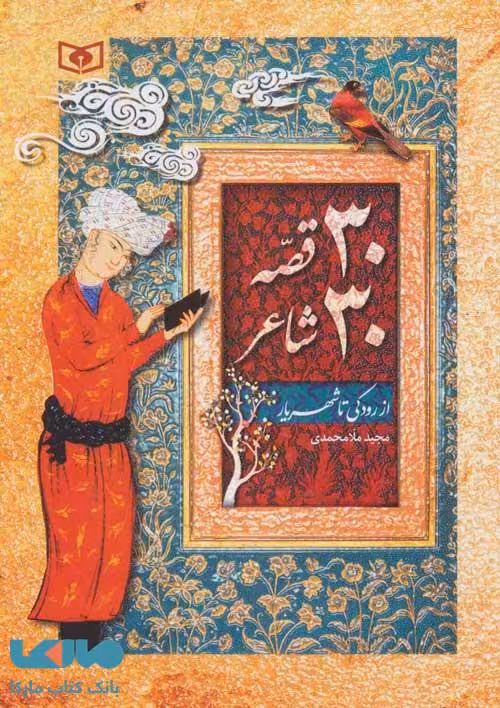 ۳۰ قصّه
۳۰ شاعر
از رودکی تا شهریار
مجید ملامحمدی
مارکا
بانک کتاب مارکا